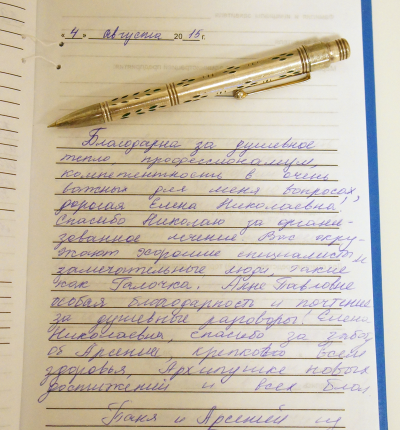 "4" августа 2015г.
Благодарна за душевное
тепло, профессионализм,
компетентность в очень
важных для меня вопросах,
дорогая Елена Николаевна,
Спасибо Николаю за органи-
зованное лечение! Вас окру-
жают хорошие специалисты и
замечательные люди, такие
как Галочка. Анне Павловне
особая благодарность и почтение
за душевные разговоры! Елена
Николаевна, спасибо за заботу
об Арсении крепкого всем
здоровья, Архипушке новых
достижений и всех благ
Таня и Арсений